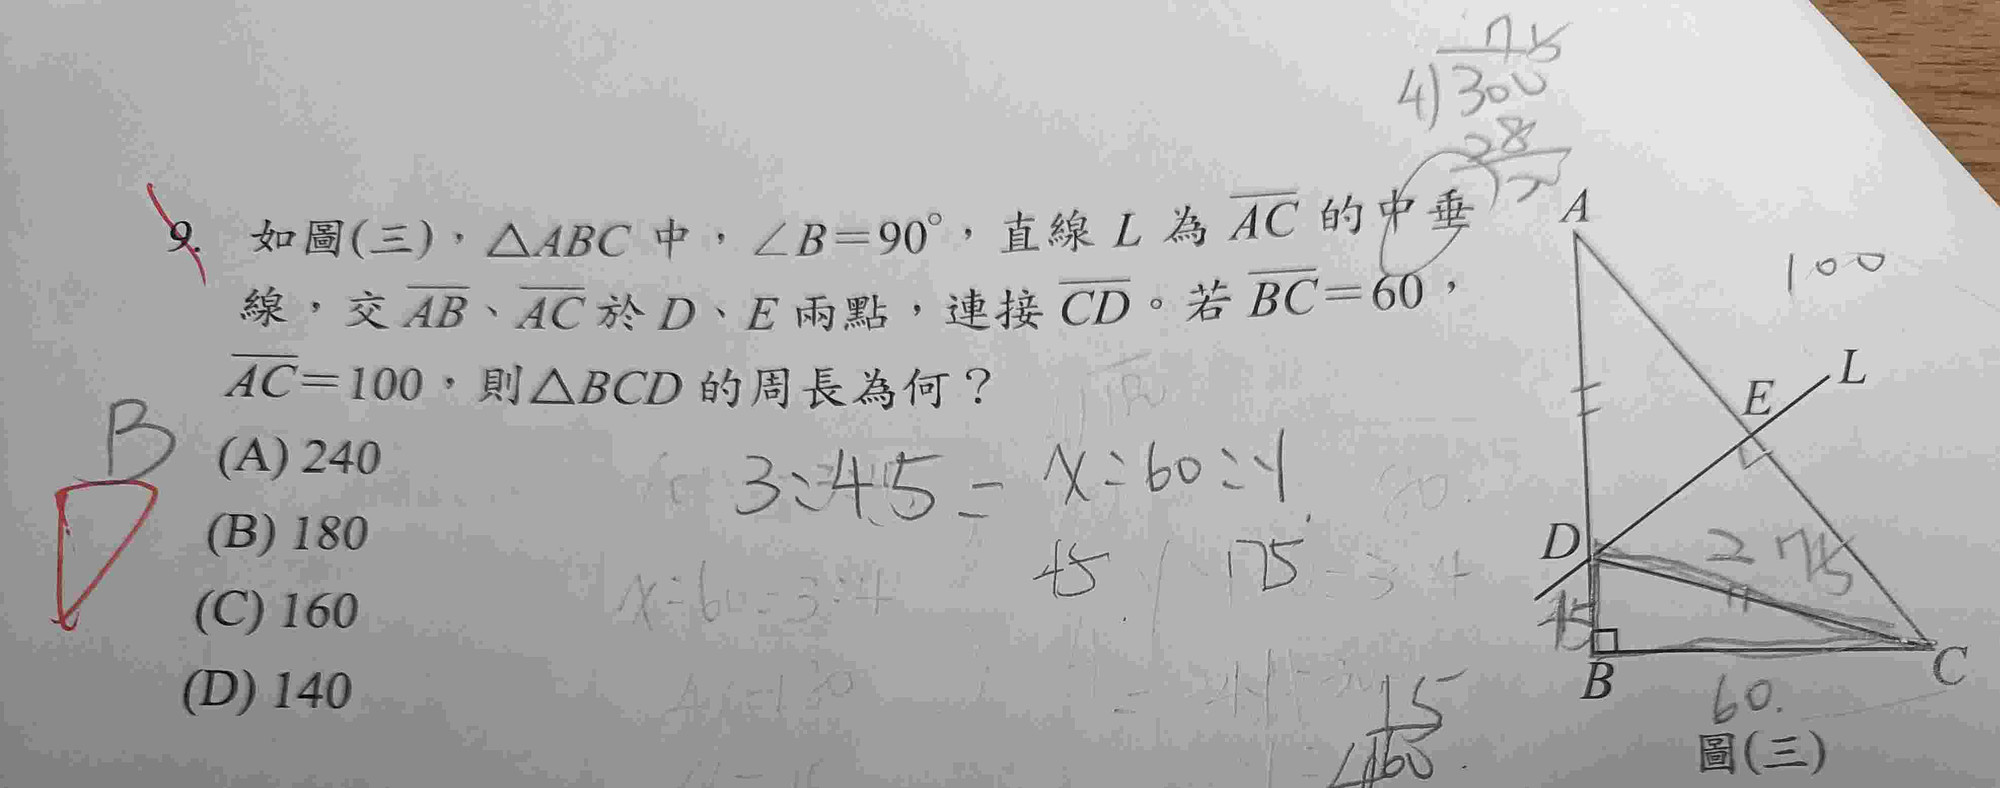 75
4)300
28
9. 如圖(三)，△ABC 中，∠B=90°，直線 L 為 AC 的中垂
線，交 AB、AC 於 D、E 兩點，連接 CD。若 BC=60，
AC=100，則△BCD 的周長為何？
B
(A) 240
(B) 180
(C) 160
(D) 140
3:4:5= x:60:y
45 75
x:60=3:4
15
460
A
100
L
E
D
75
45
B
C
60
圖(三)